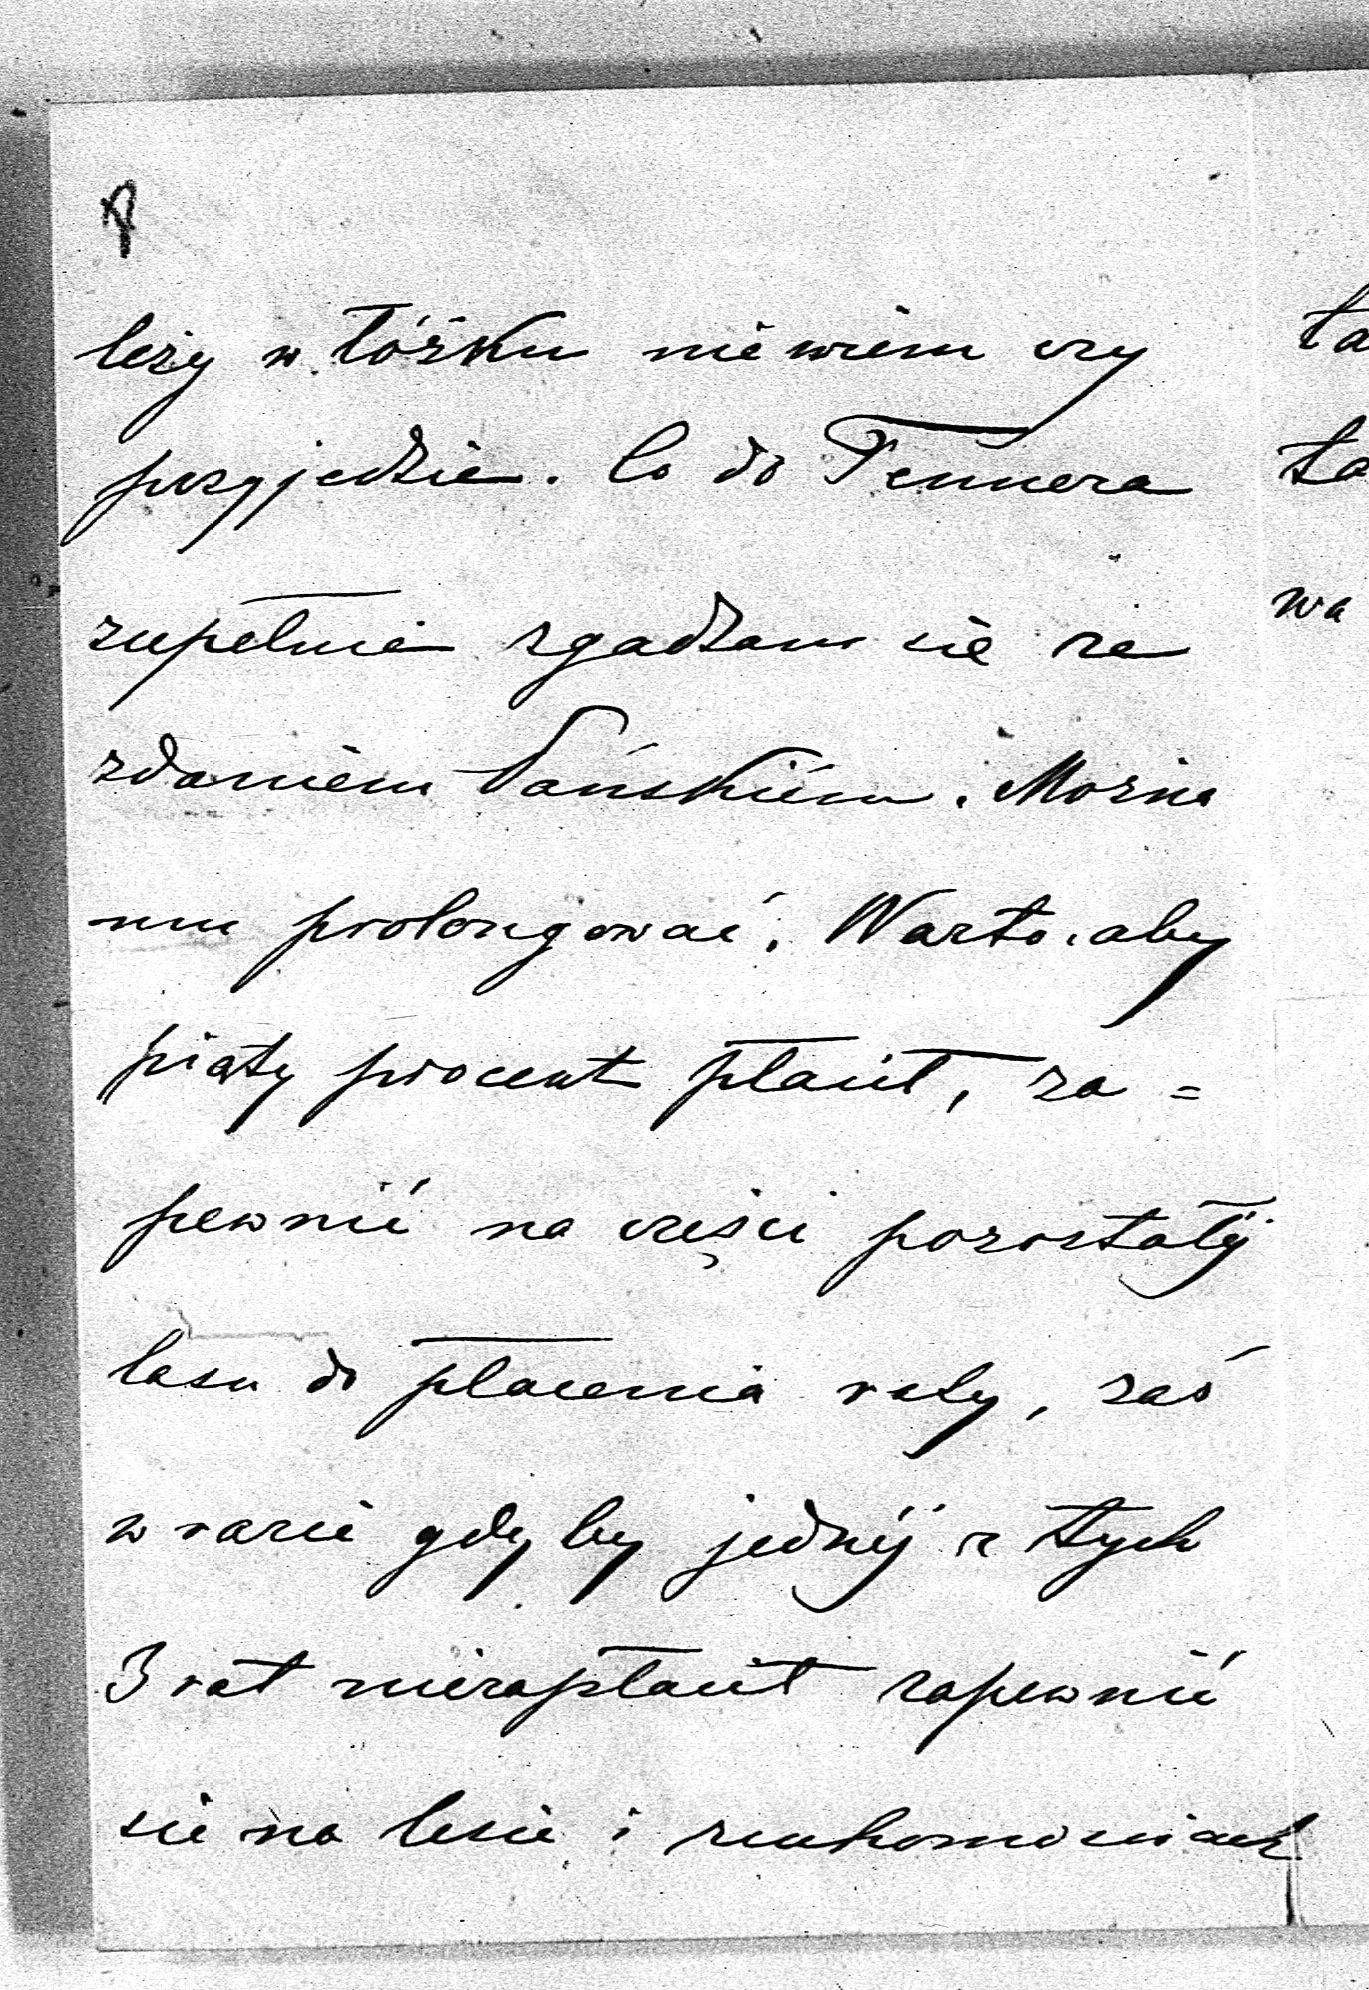 leży w łóżku niewiem czy
przyjedzie. Co do Tennera
zupełnie zgadzam się ze
zdaniem Pańskiém. Można
mu prolongować. Warto, aby
piąty procent płacił, za=
pewnić na części pozostałéj
lasu do płacenia raty, zaś
w razie gdyby jednéj z tych
3 rat niezapłacił zapewnić
sie na lesie i ruchomościach
ta
ta
wa